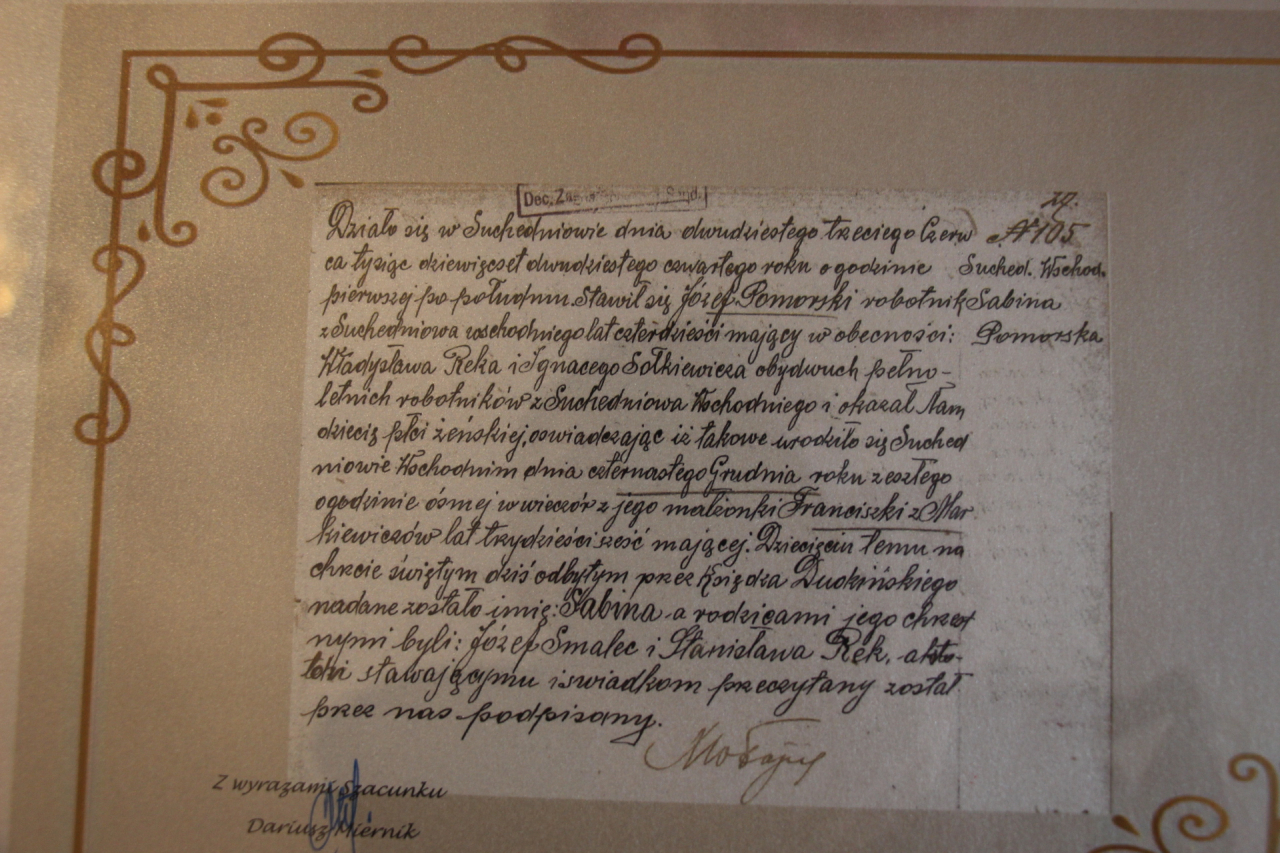 Dec. Z
29.
Działo się w Suchedniowie dnia dwudziestego trzeciego Czerw
№ 105
ca tysiąc dziewięćset dwudziestego czwartego roku o godzinie
Suched. Wschod.
pierwszej po południu. Stawił się Józef Pomorski robotnik
Sabina
z Suchedniowa wschodniego lat czterdzieści mający w obecności:
Pomorska
Władysława Reka i Ignacego Sołkiewicza obydwuch pełno-
letnich robotników z Suchedniowa Wschodniego i okazał Nam
dziecię płci żeńskiej, oswiadczając iż takowe urodziło się Suched
niowie Wschodnim dnia czternastego Grudnia roku zeszłego
o godzinie ósmej w wieczór z jego małżonki Franciszki z Mar
kiewiczów lat trzydzieści sześć mającej. Dziecięciu temu na
chrcie świętym dziś odbytym przez Księdza Dudzińskiego
nadane zostało imię: Sabina a rodzicami jego chrzest
nymi byli: Józef Smalec i Stanisława Rek.
stawającymu i swiadkom przeczytany został
przez nas podpisany.
Z wyrazami Szacunku
Dariusz Miernik